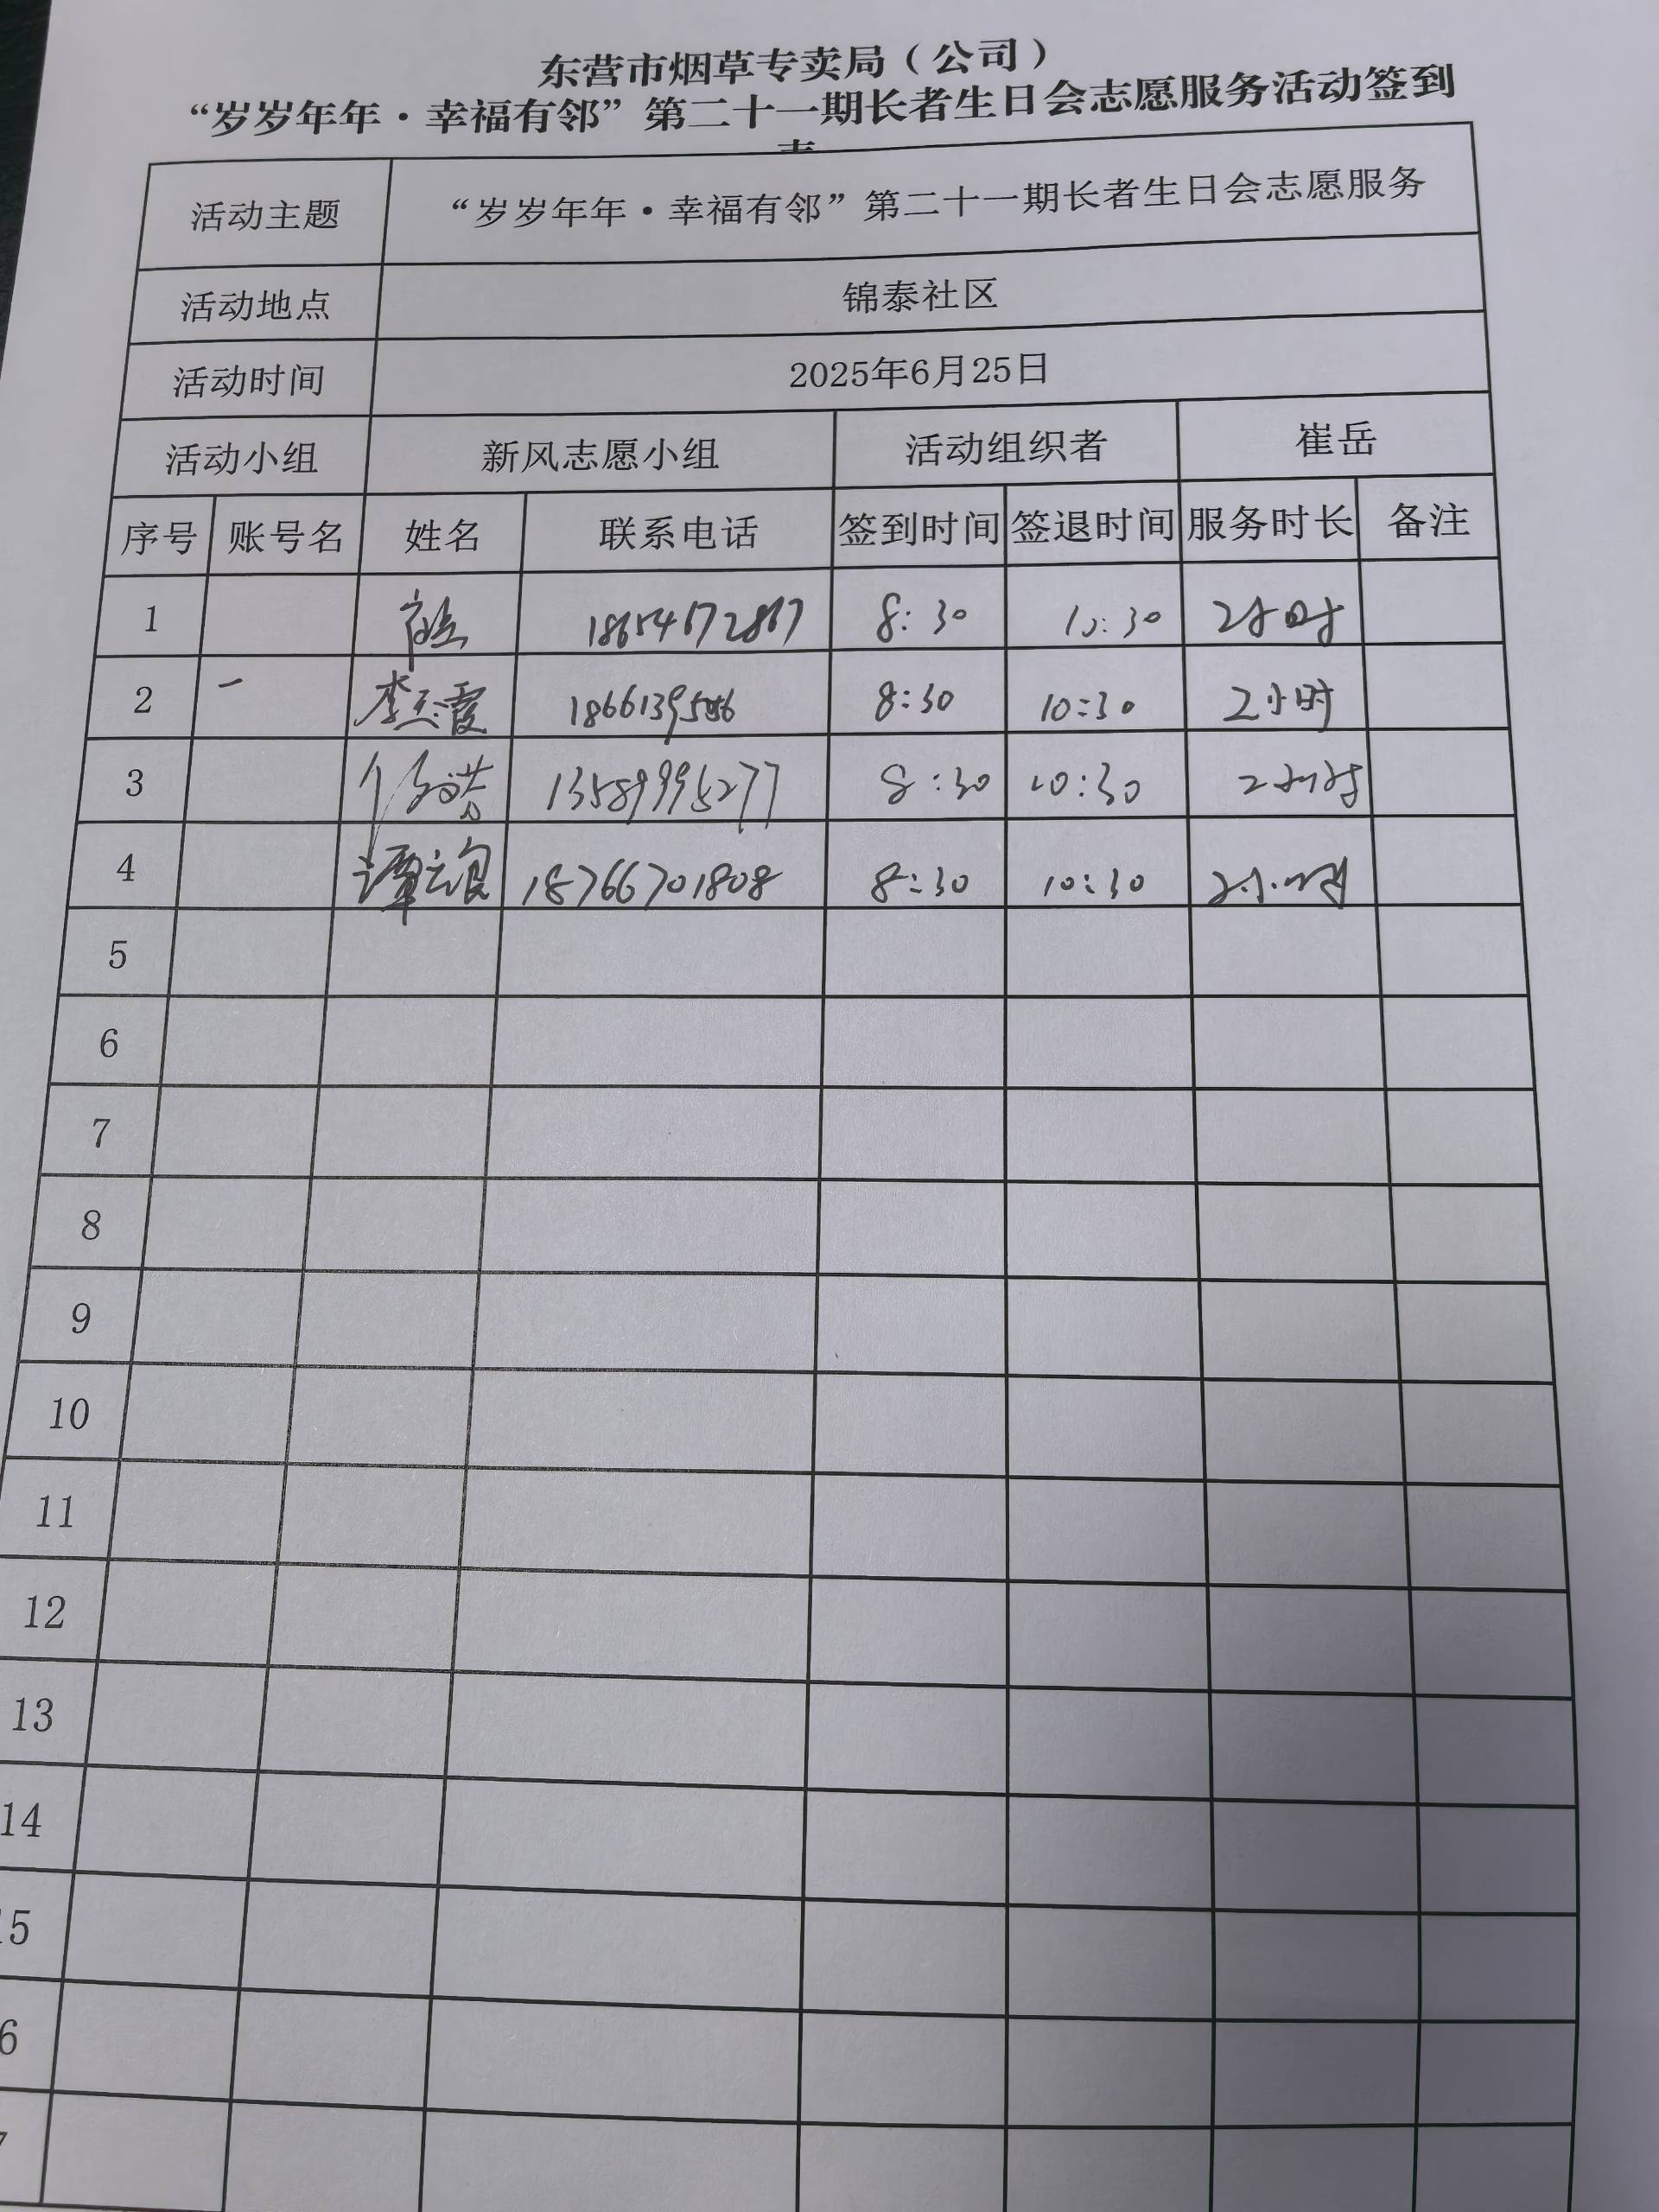 东营市烟草专卖局（公司）
“岁岁年年·幸福有邻”第二十一期长者生日会志愿服务活动签到
活动主题 “岁岁年年·幸福有邻”第二十一期长者生日会志愿服务
活动地点 锦泰社区
活动时间 2025年6月25日
活动小组 新风志愿小组 活动组织者 崔岳
序号 账号名 姓名 联系电话 签到时间 签退时间 服务时长 备注
1 8:30 10:30 2小时
2 李 霞 8:30 10:30 2小时
3 13589995277 8:30 10:30 2小时
4 谭 18766701808 8:30 10:30 2小时
5
6
7
8
9
10
11
12
13
14
15
6
7